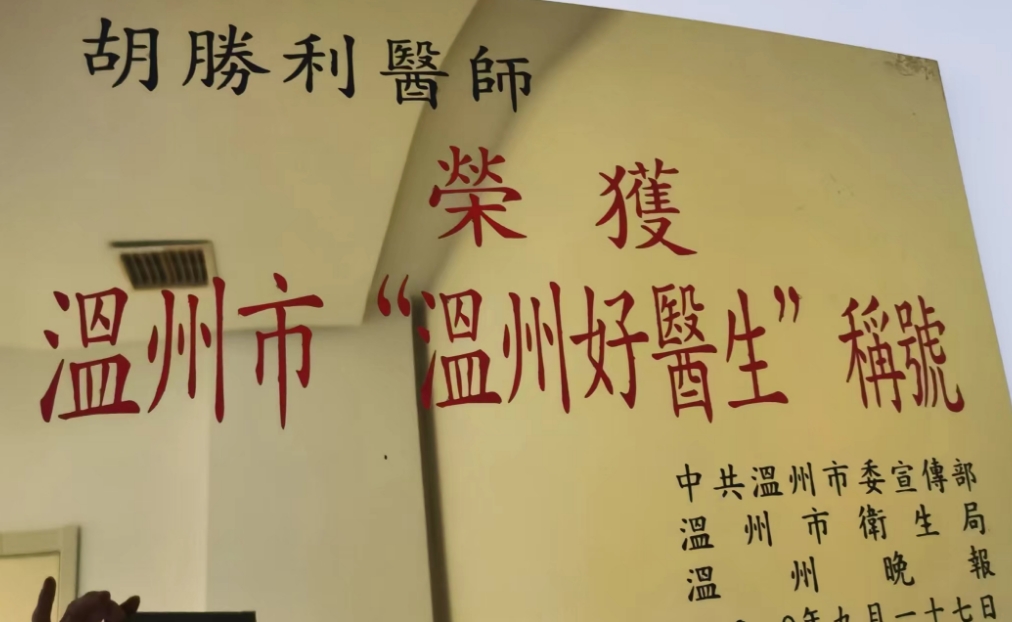 胡勝利醫師
榮獲
溫州市“溫州好醫生”稱號
中共溫州市委宣傳部
溫州市衛生局
溫州晚報
年九月一十七日